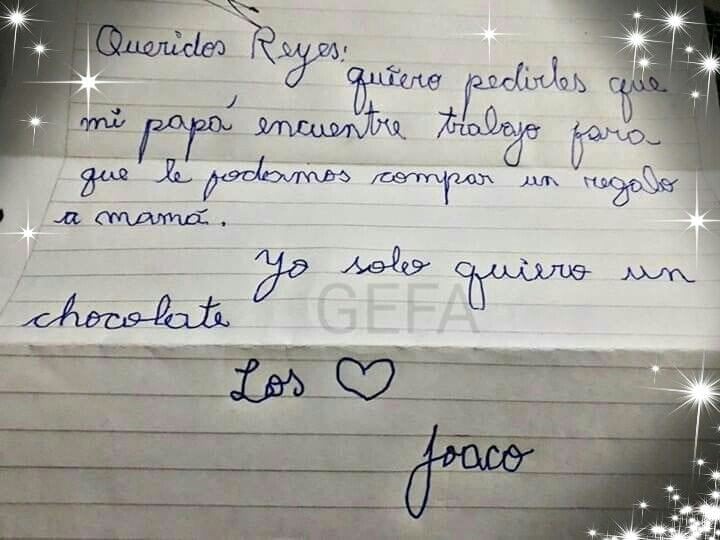 Queridos Reyes:
quiero pedirles que
mi papá encuentre trabajo para
que le podamos compar un regalo
a mamá.
Yo solo quiero un
chocolate
GEFA
Los ♡
Joaco